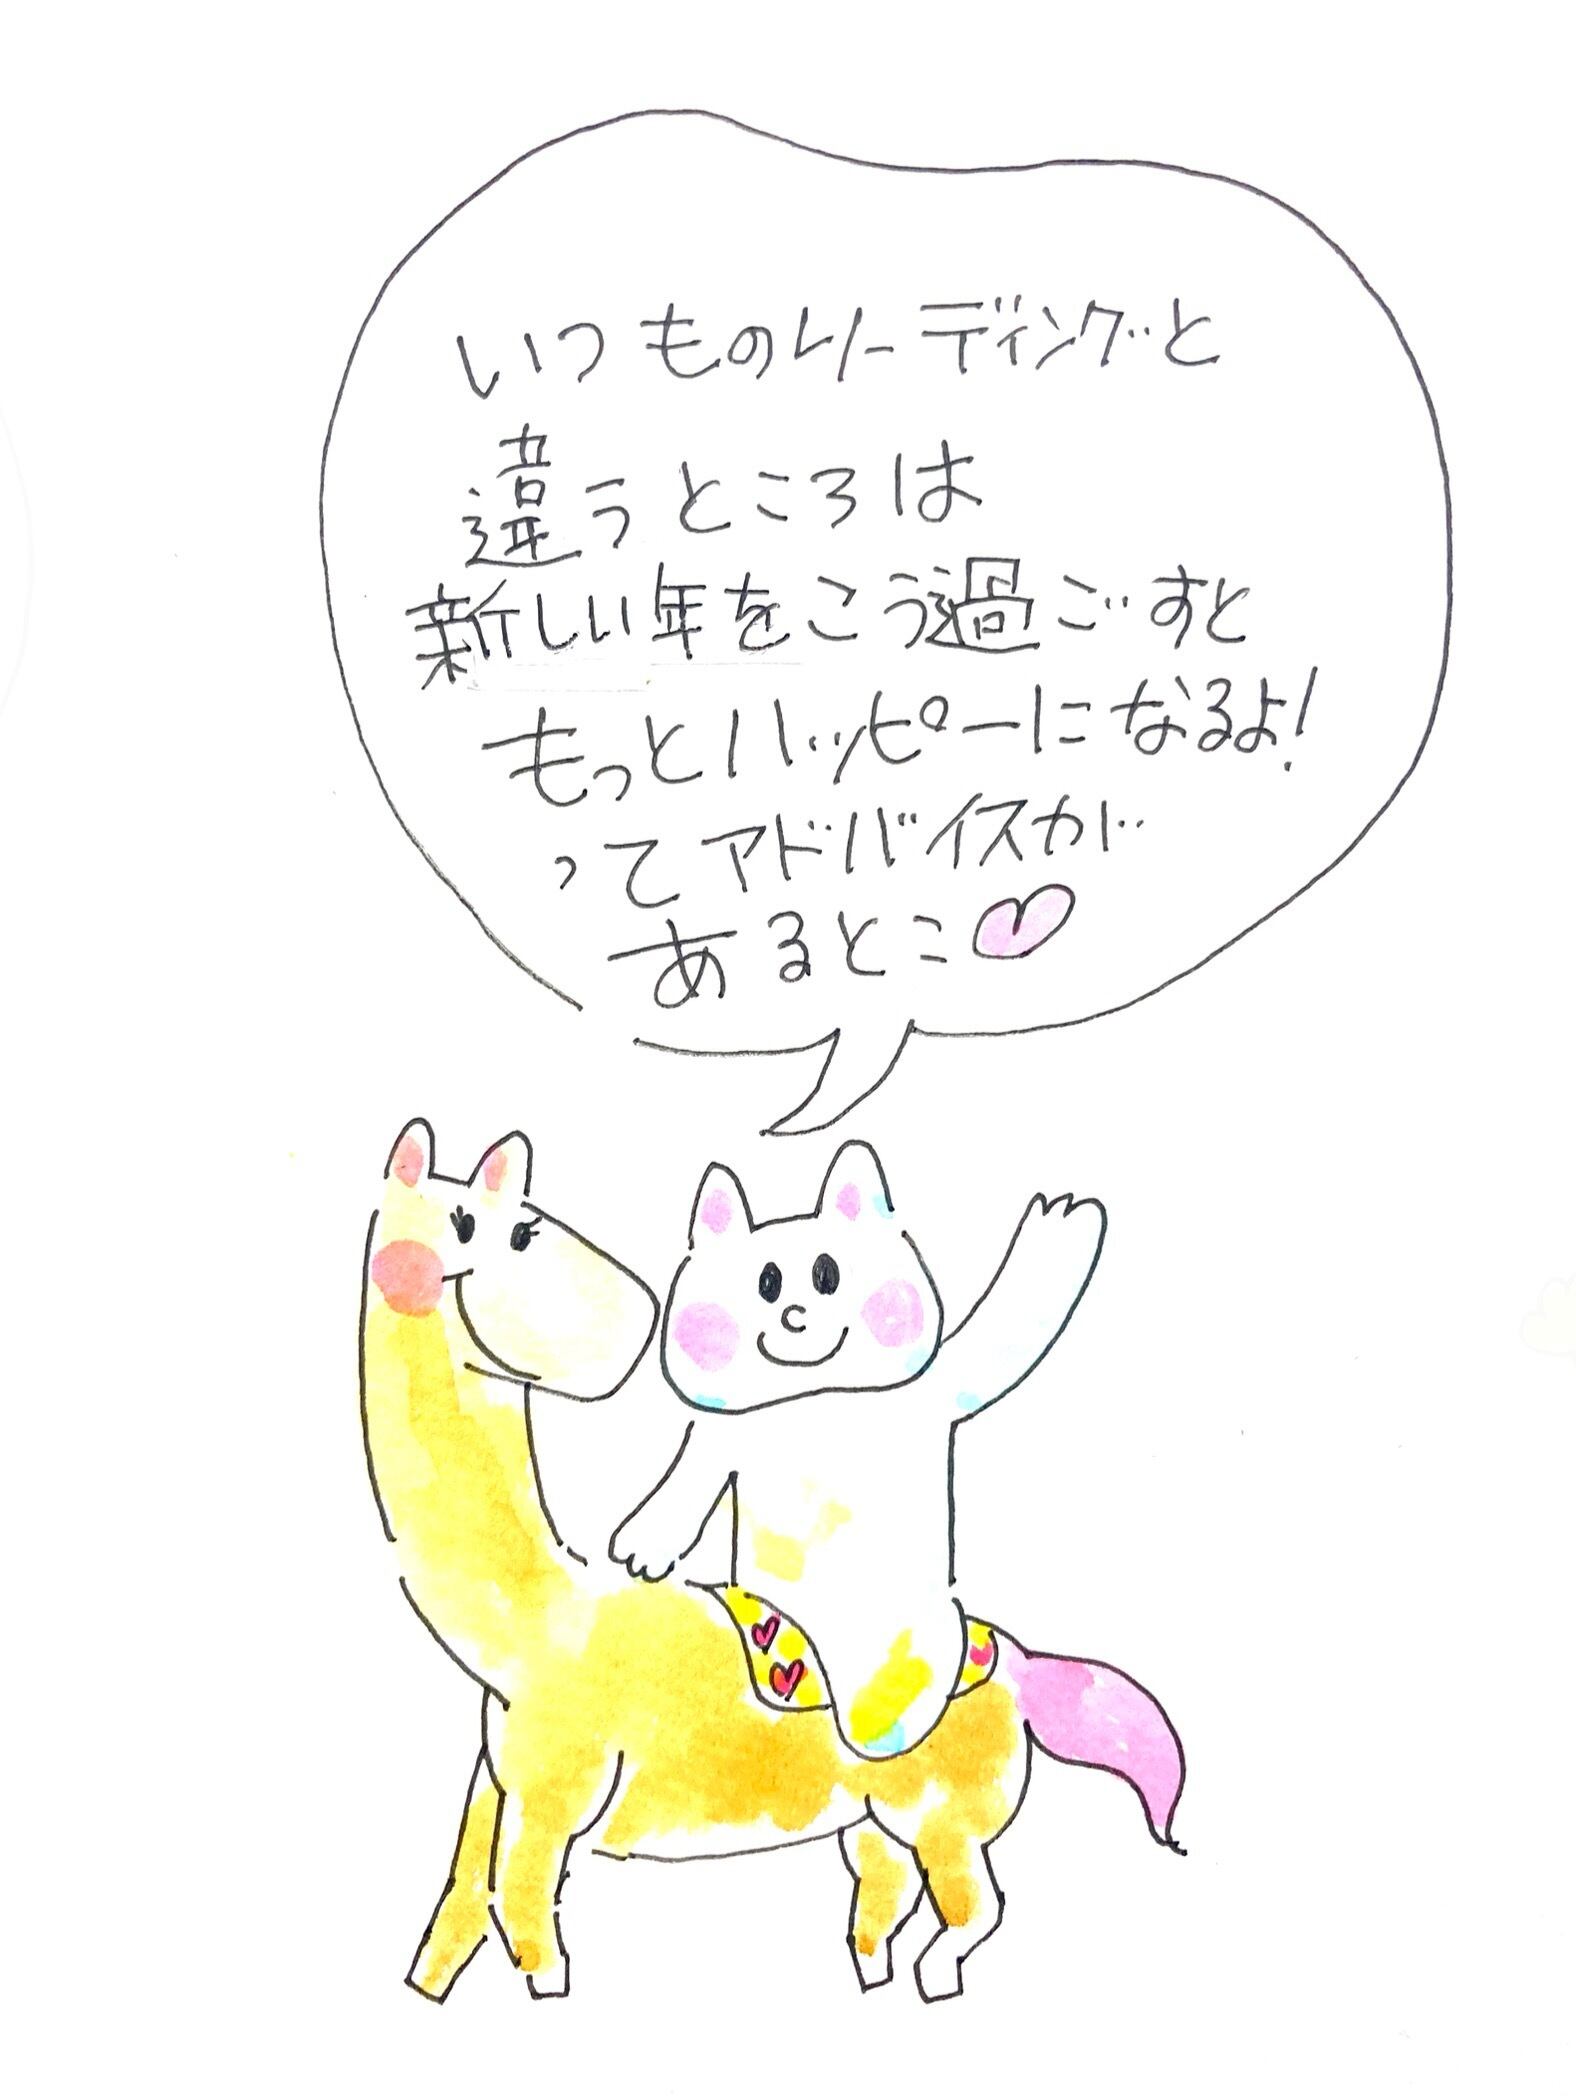 いつものリーディングと
違うところは
新しい年をこう過ごすと
もっとハッピーになるよ!
ってアドバイスが
あるとこ